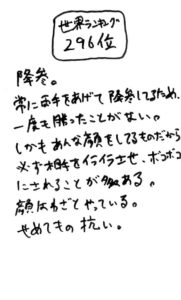 世界ランキング
296位
降参。
常にお手をあげて降参してるため、
一度も勝ったことがない。
しかもあんな顔をしてるものだから
必ず相手をイライラさせ、ボコボコ
にされることが多々ある。
顔はわざとやっている。
せめてもの抗い。